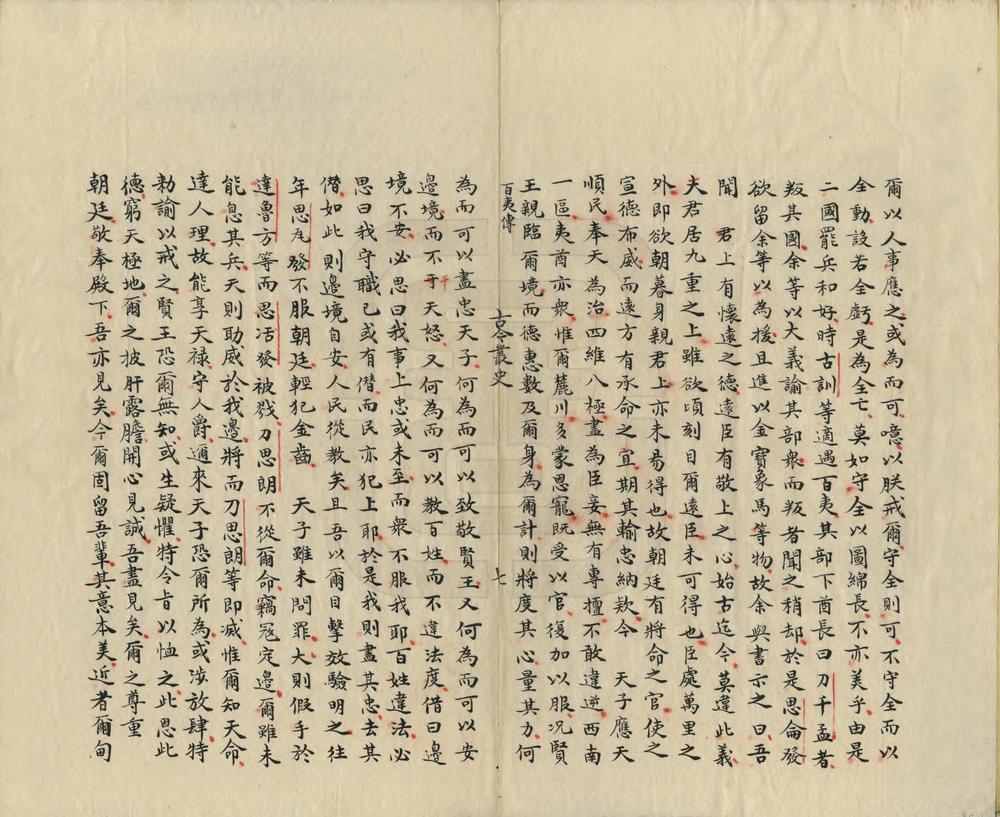 爾以人事應之或為而可噫以朕戒爾守全則可不守全而以
全動設若全虧是為全亡莫如守全以圖綿長不亦美乎由是
二國罷兵和好時古訓等適遇百夷其部下酋長曰刀千孟者
叛其國余等以大義諭其部衆而叛者聞之稍却於是思倫發
欲留余等以為援且進以金寶象馬等物故余與書示之曰吾
聞　君上有懷遠之德遠臣有敬上之心始古迄今莫違此義
夫君居九重之上雖欲頃刻目爾遠臣未可得也臣處萬里之
外即欲朝暮身親君上亦未易得也故朝廷有將命之官使之
宣德布威而遠方有承命之宜期其輸忠納欵今　天子應天
順民奉天為治四維八極盡為臣妾無有專擅不敢違逆西南
一區夷酋亦衆惟爾麓川多蒙恩寵既受以官復加以服况賢
王親臨爾境而德惠數及爾身為爾計則將度其心量其力何
百夷傳
古今叢史
七
為而可以盡忠天子何為而可以致敬賢王又何為而可以安
邊境而不于天怒又何為而可以教百姓而不違法度借曰邊
境不安必思曰我事上忠或未至而衆不服我耶百姓違法必
思曰我守職已或有僣而民亦犯上耶於是我則盡其忠去其
僣如此則邊境自安人民從教矣且吾以爾目擊效驗明之往
年思瓦發不服朝廷輕犯金齒　天子雖未問罪大則假手於
達魯方等而思活發被戮刀思朗不從爾命竊寇定邊爾雖未
能息其兵天則助威於我邊將而刀思朗等即滅惟爾知天命
達人理故能享天祿守人爵邇來天子恐爾所為或涉放肆特
勑諭以戒之賢王恐爾無知或生疑懼特令旨以恤之此恩此
德窮天極地爾之披肝露膽開心見誠吾盡見矣爾之尊重
朝廷敬奉殿下吾亦見矣今爾固留吾輩其意本美近者爾甸